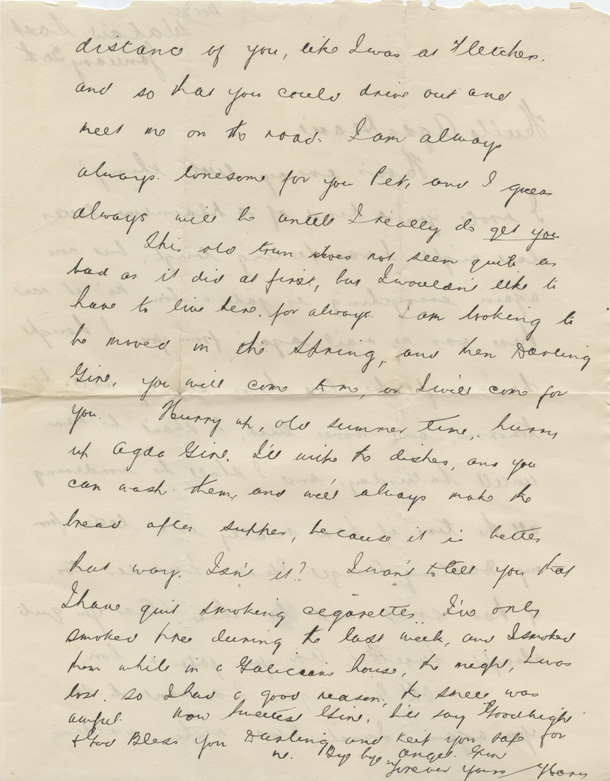 distance of you, like I was at Fletcher.
and so that you could drive out and
meet me on the road. I am always
always lonesome for you Pet, and I guess
always will be until I really do get you
This old town does not seem quite as
bad as it did at first, but I wouldn't like to
have to live here for always. I am looking to
be moved in the Spring, and then Darling
Girl, you will come to me, or I will come for
you. Hurry up, old summer time, hurry
up Agda Girl. I'll wipe the dishes, and you
can wash them, and we'll always make the
bread after supper, because it is better
that way. Isn't it? I want to tell you that
I have quit smoking cigarettes. I've only
smoked three during the last week, and I smoked
them while in a Galician house, the night, I was
lost. so I had a good reason, the smell was
awful. Now Sweetest Girl, I'll say Goodnight
& God Bless You Darling and keep you safe for
me. Bye bye angel Girl
Forever Yours